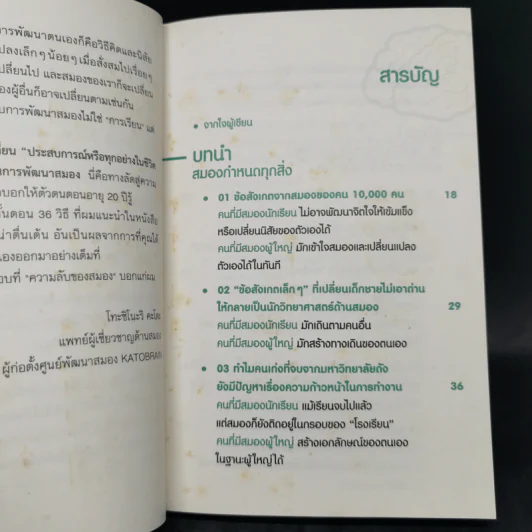 การพัฒนาตนเองก็คือวิธีคิดและนิสัย
ปลงเล็กๆ น้อยๆ เมื่อสั่งสมไปเรื่อยๆ
เปลี่ยนไป และสมองของเราก็จะเปลี่ยน
องผู้อื่นก็อาจเปลี่ยนตามเช่นกัน
บการพัฒนาสมองไม่ใช่ "การเรียน" แต่
ยน "ประสบการณ์หรือทุกอย่างในชีวิต
การพัฒนาสมอง นี่คือทางลัดสู่ความ
บอกให้ตัวตนตอนอายุ 20 ปีรู้
ั้นตอน 36 วิธี ที่ผมแนะนำในหนังสือ
น่าตื่นเต้น อันเป็นผลจากการที่คุณได้
องออกมาอย่างเต็มที่
อบที่ "ความลับของสมอง" บอกแก่ผม
โทะชิโนะริ คะโตะ
แพทย์ผู้เชี่ยวชาญด้านสมอง
ผู้ก่อตั้งศูนย์พัฒนาสมอง KATOBRAIN
สารบัญ
• จากใจผู้เขียน
บทนำ
สมองกำหนดทุกสิ่ง
• 01 ข้อสังเกตจากสมองของคน 10,000 คน 18
คนที่มีสมองนักเรียน ไม่อาจพัฒนาจิตใจให้เข้มแข็ง
หรือเปลี่ยนนิสัยของตัวเองได้
คนที่มีสมองผู้ใหญ่ มักเข้าใจสมองและเปลี่ยนแปลง
ตัวเองได้ในทันที
• 02 "ข้อสังเกตเล็กๆ" ที่เปลี่ยนเด็กชายไม่เอาถ่าน
ให้กลายเป็นนักวิทยาศาสตร์ด้านสมอง 29
คนที่มีสมองนักเรียน มักเดินตามคนอื่น
คนที่มีสมองผู้ใหญ่ มักสร้างทางเดินของตนเอง
• 03 ทำไมคนเก่งที่จบจากมหาวิทยาลัยดัง
ยังมีปัญหาเรื่องความก้าวหน้าในการทำงาน 36
คนที่มีสมองนักเรียน แม้เรียนจบไปแล้ว
แต่สมองก็ยังติดอยู่ในกรอบของ "โรงเรียน"
คนที่มีสมองผู้ใหญ่ สร้างเอกลักษณ์ของตนเอง
ในฐานะผู้ใหญ่ได้